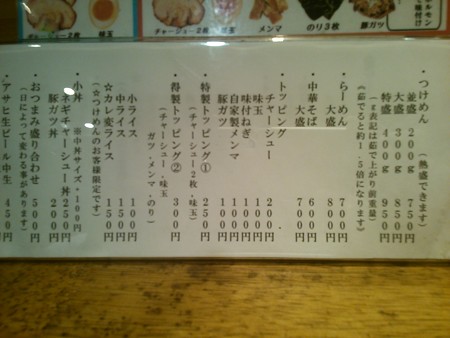 チャーシュー2枚
味玉
メンマ
のり3枚
豚ガツ
ホルモン
味付け
・つけめん (熱盛できます)
並盛 200g 750
大盛 300g 850
特盛 400g 950
(g表記は茹で上がり前重量)
《茹でると約1.5倍になります》
・らーめん 700
大盛 800
・中華そば 600
大盛 700
・トッピング
チャーシュー 200
味玉 100
味付ねぎ 100
自家製メンマ 100
豚ガツ 100
特製トッピング① 250
(チャーシュー2枚・味玉)
・得製トッピング② 300円
(チャーシュー・味玉
ガツ・メンマ・のり)
小ライス 100円
中ライス 150円
☆カレ変ライス 150円
(☆つけめんのお客様限定です)
・小丼 ※中丼サイズ+100円
ネギチャーシュー丼 250円
豚ガツ丼 200円
おつまみ盛り合わせ 500円
(日によって変わる事があります)
・アサヒ生ビール中生 450円